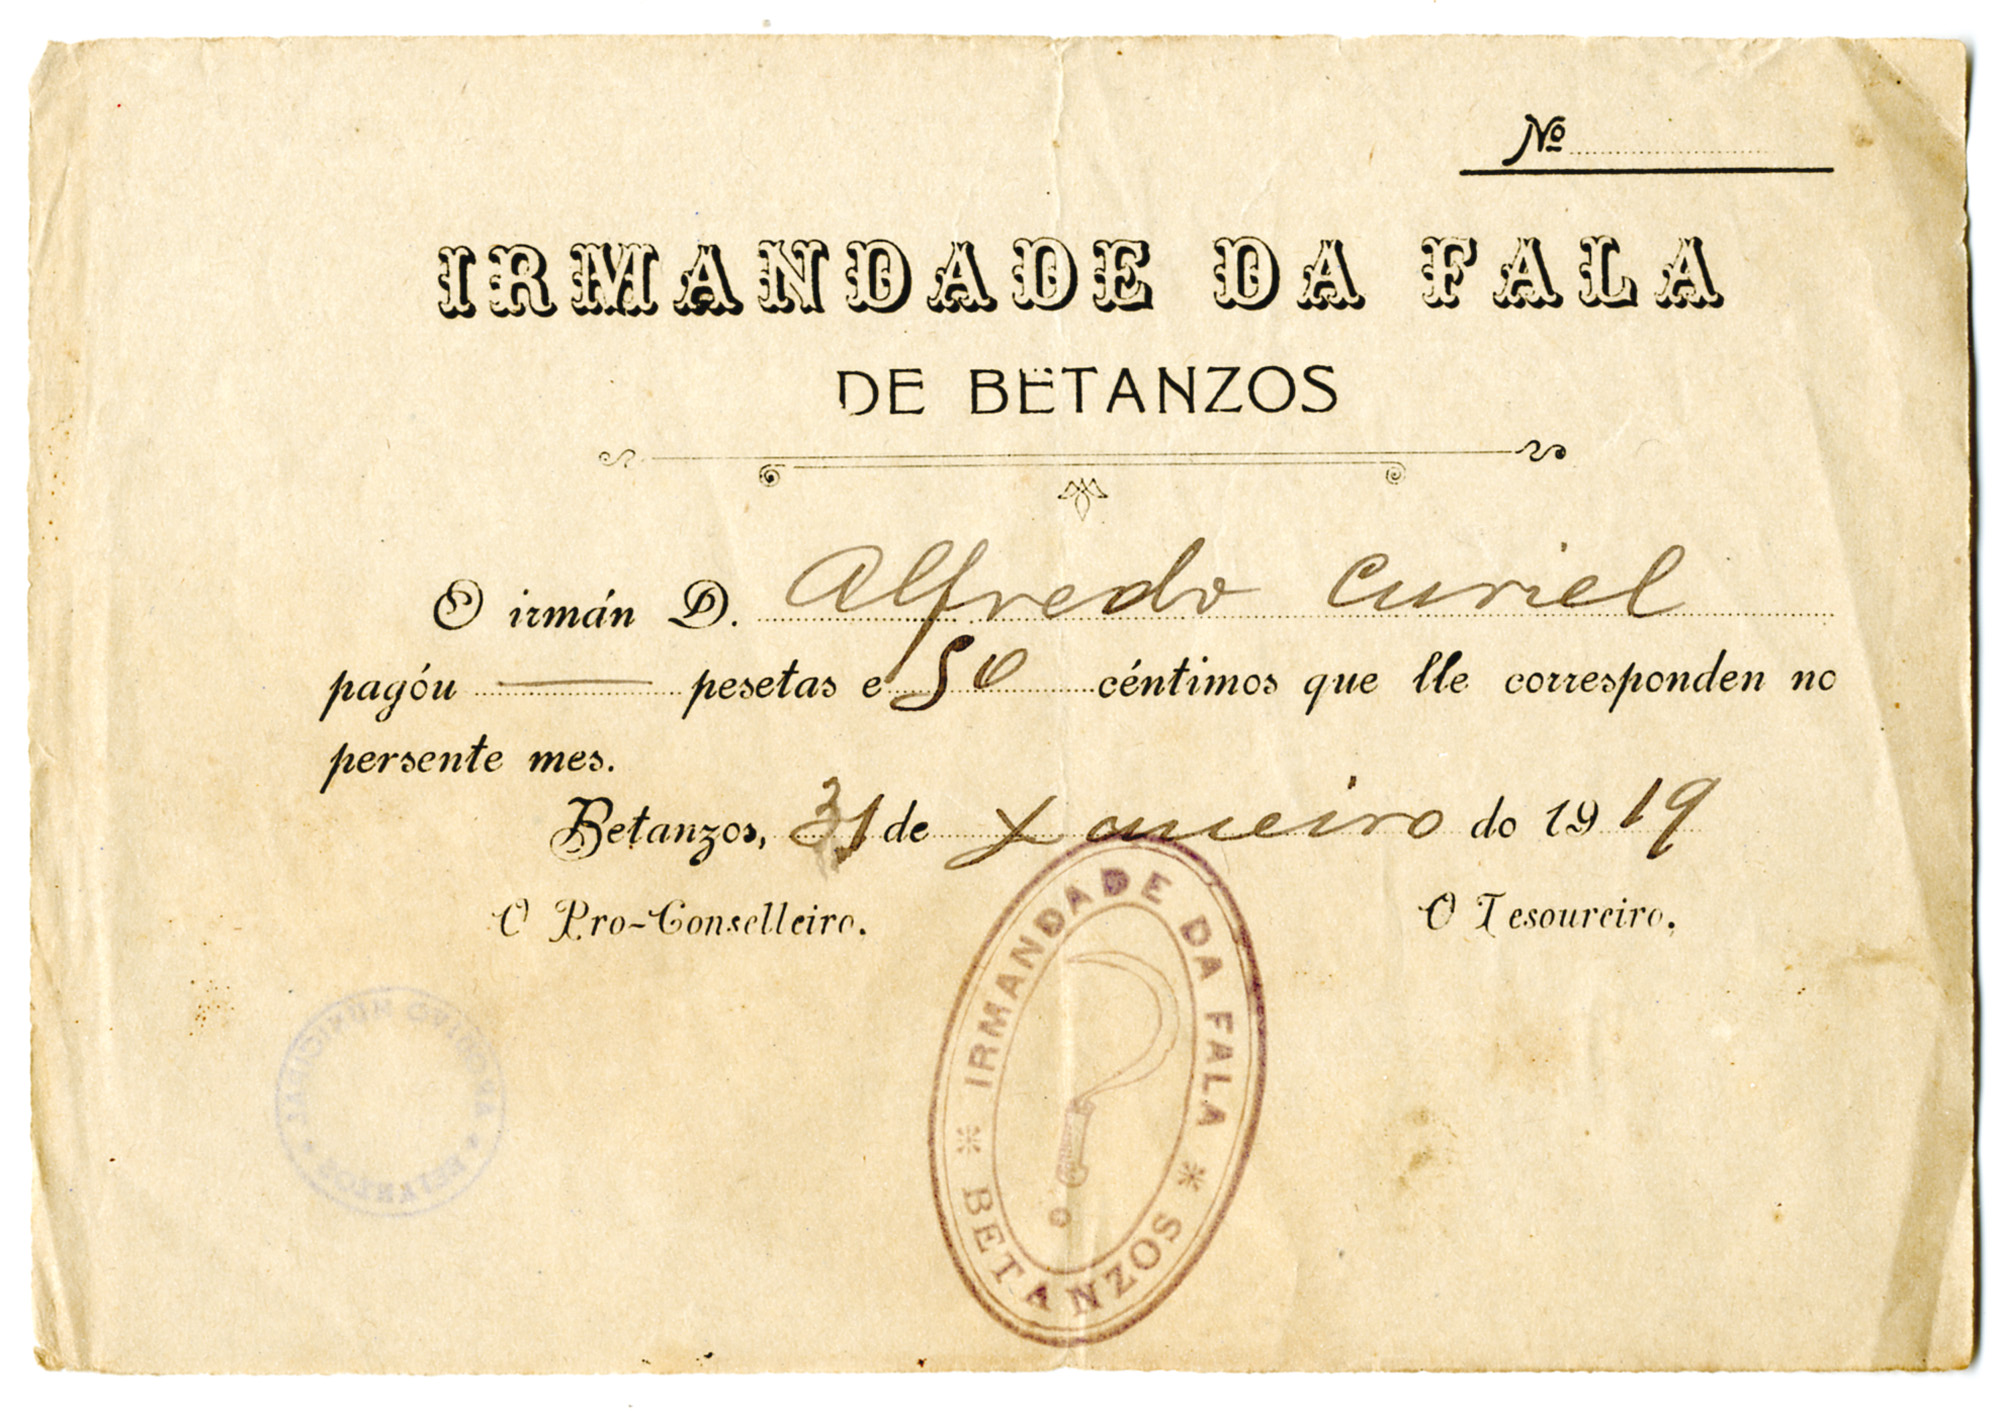 Nº
IRMANDADE DA FALA
DE BETANZOS
O irmán D. Alfredo Curiel
pagóu — pesetas e 50 céntimos que lle corresponden no
persente mes.
Betanzos, 31 de Xaneiro do 1919
O Pro-Conselleiro. O Tesoureiro.
IRMANDADE DA FALA
* BETANZOS *
ARCHIVO MUNICIPAL
* BETANZOS *